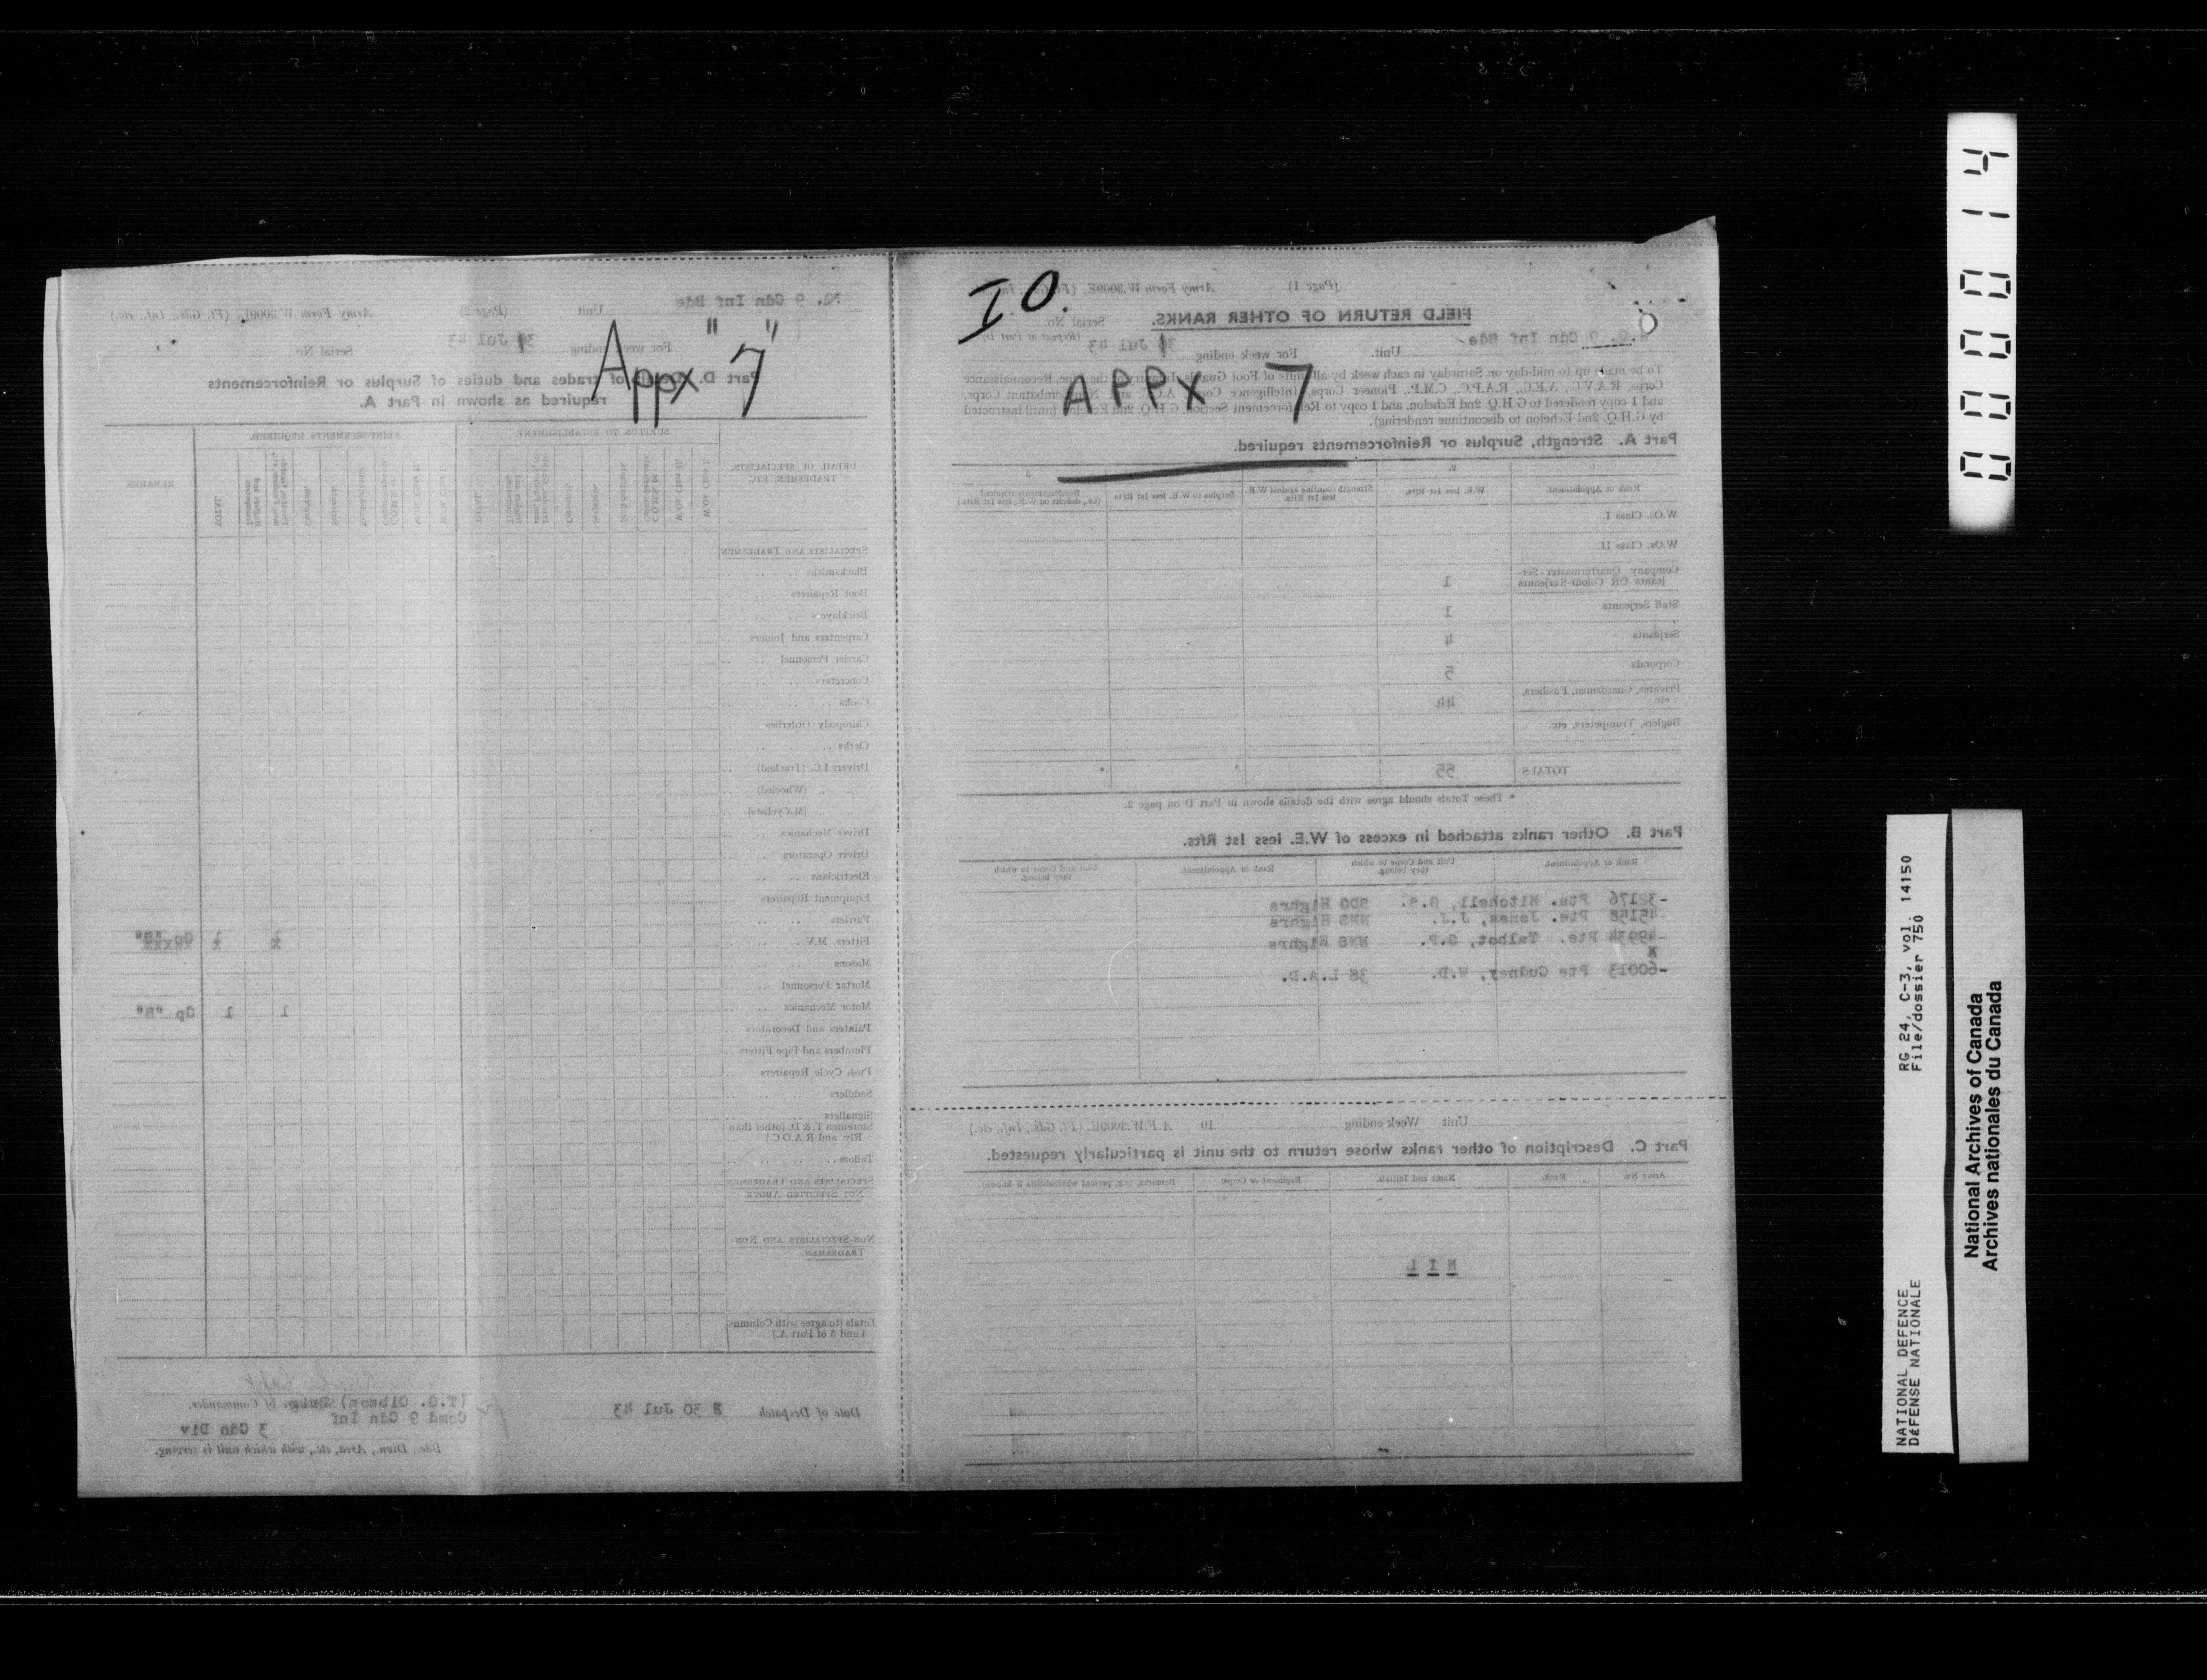 I.O.
Appx "7"
APPX 7
(Page 1)
Army Form W.3009E.
FIELD RETURN OF OTHER RANKS.
Serial No.
H.Q. 9 Cdn Inf Bde
Unit.
For week ending
Jul 43
(Repeat at Part D)
To be made up to mid-day on Saturday in each week by all
Corps, R.A.V.C., A.E.C., R.A.P.C., C.M.P., Pioneer Corps,
and 1 copy rendered to G.H.Q. 2nd Echelon, and 1 copy to Reinforcement Section, G.H.Q. 2nd Echelon (until instructed
by G.H.Q. 2nd Echelon to discontinue rendering).
Part A. Strength, Surplus or Reinforcements required.
Rank or Appointment.
W.E. less 1st Rfts.
Strength counting against W.E. less 1st Rfts.
Surplus to W.E. less 1st Rfts.
W.Os. Class I.
W.Os. Class II.
Company Quartermaster-Ser-
jeants OR Colour-Serjeants 1
Staff Serjeants 1
Serjeants 4
Corporals 5
Privates, Guardsmen, Fusiliers,
etc. 44
Buglers, Trumpeters, etc.
TOTALS 55
* These Totals should agree with the details shown in Part D on page 2.
Part B. Other ranks attached in excess of W.E. less 1st Rfts.
Rank or Appointment.
Unit and Corps to which they belong.
Rank or Appointment.
Unit and Corps to which they belong.
-32176 Pte. Mitchell, G.S. SDG Highrs
Pte. Jones, J.J. NNS Highrs
-49934 Pte. Talbot, G.P. NNS Highrs
-60013 Pte Gudney, W.D. 38 L.A.D.
Unit
Week ending
19
A.F.W.3009E. (Ft. Gds., Inf., etc.)
Part C. Description of other ranks whose return to the unit is particularly requested.
Army No.
Rank.
Name and Initials.
Regiment or Corps.
Remarks, (e.g. present whereabouts if known)
N I L
9 Cdn Inf Bde
Unit
(Page 2)
Army Form W.3009E. (Ft. Gds., Inf., etc.)
For week ending
Jul 43
Serial No.
Part D. Details of trades and duties of Surplus or Reinforcements
required as shown in Part A.
DETAIL OF SPECIALISTS,
TRADESMEN, ETC.
SURPLUS TO ESTABLISHMENT.
REINFORCEMENTS REQUIRED.
W.Os. Class I.
W.Os. Class II.
TOTAL
REMARKS
SPECIALISTS AND TRADESMEN
Blacksmiths
Boot Repairers
Bricklayers
Carpenters and Joiners
Carrier Personnel
Concreters
Cooks
Chiropody Orderlies
Clerks
Drivers I.C. (Tracked)
(Wheeled)
(M/Cyclists)
Driver Mechanics
Driver Operators
Electricians
Equipment Repairers
Farriers
Fitters, M.V.
Masons
Mortar Personnel
Motor Mechanics 1 1 Gp "B"
Painters and Decorators
Plumbers and Pipe Fitters
Push Cycle Repairers
Saddlers
Signallers
Storemen T. & D. (other than
Riv. and R.A.O.C.)
Tailors
SPECIALISTS AND TRADESMEN
NOT SPECIFIED ABOVE
NON-SPECIALISTS AND NON-
TRADESMEN.
Totals (to agree with Columns
4 and 5 of Part A.)
Date of Despatch
30 Jul 43
(T.G. Gibson)
of Commander.
Comd 9 Cdn Inf
3 Cdn Div
Bde., Divn., Area, etc., with which unit is serving.
0000014
RG 24, C-3, vol. 14150
File/dossier 750
NATIONAL DEFENCE
DÉFENSE NATIONALE
National Archives of Canada
Archives nationales du Canada